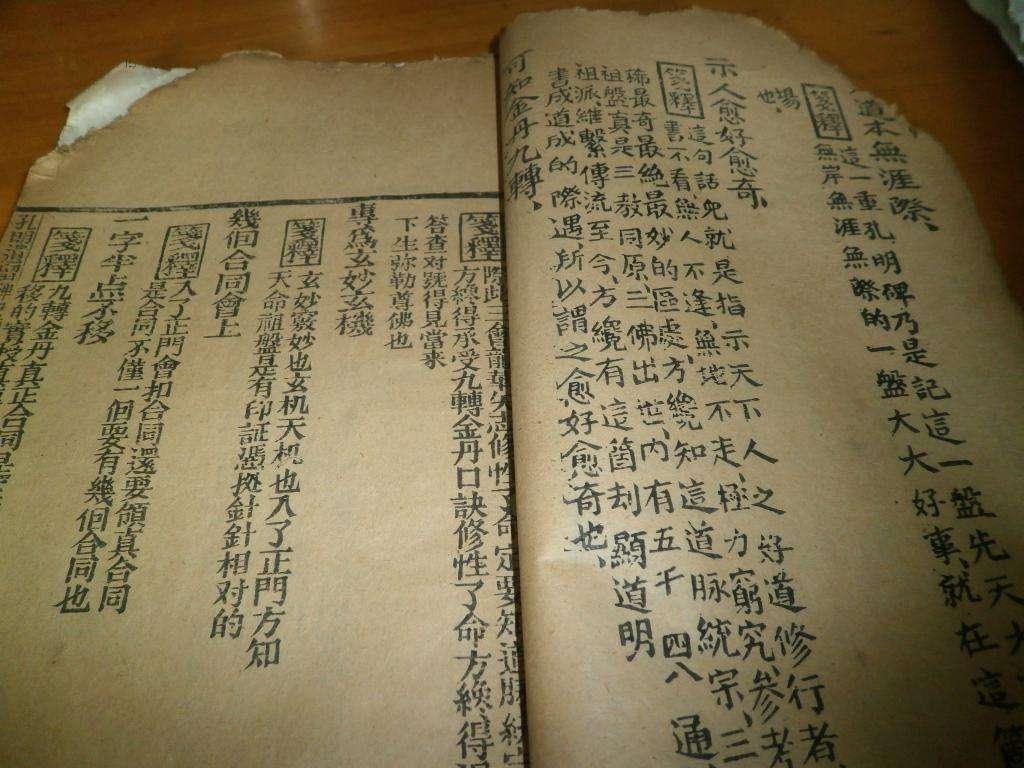 道本無涯際、
箋釋 這一重孔明碑乃是記這一盤先天大
無岸無涯無際的一盤大大好事、就在這箇
場也、
示人愈好愈奇、
箋釋 這句話兒就是指示天下人之好道修行者、
書不看無人不逢、無地不走、極力窮究、參考
稀最奇最絶最妙的區處、方纔知這道脉統宗、三
祖盤真是三教同原、三佛出世、内有五千四八 通
祖派、維繫傳流至今、方纔有這箇刻顯道明
書成道成的際遇、所以謂之愈好愈奇也、
可知金丹九轉、
箋釋 際此三會龍華失志修性了命定要知道脉統
方總得承受九轉金丹口訣修性了命方總得
答查对號得見當來
下生弥勒尊佛也
專為玄妙玄機
箋釋 玄妙竅妙也玄机天机也入了正門方知
天命祖盤是有印証憑拠針針相对的
幾個合同會上
箋釋 入了正門會扣合同還要領真合同
是合同不僅一個要有幾個合同也
一字半点不移
箋釋 九轉金丹真正合同是
移的實授真
孔明